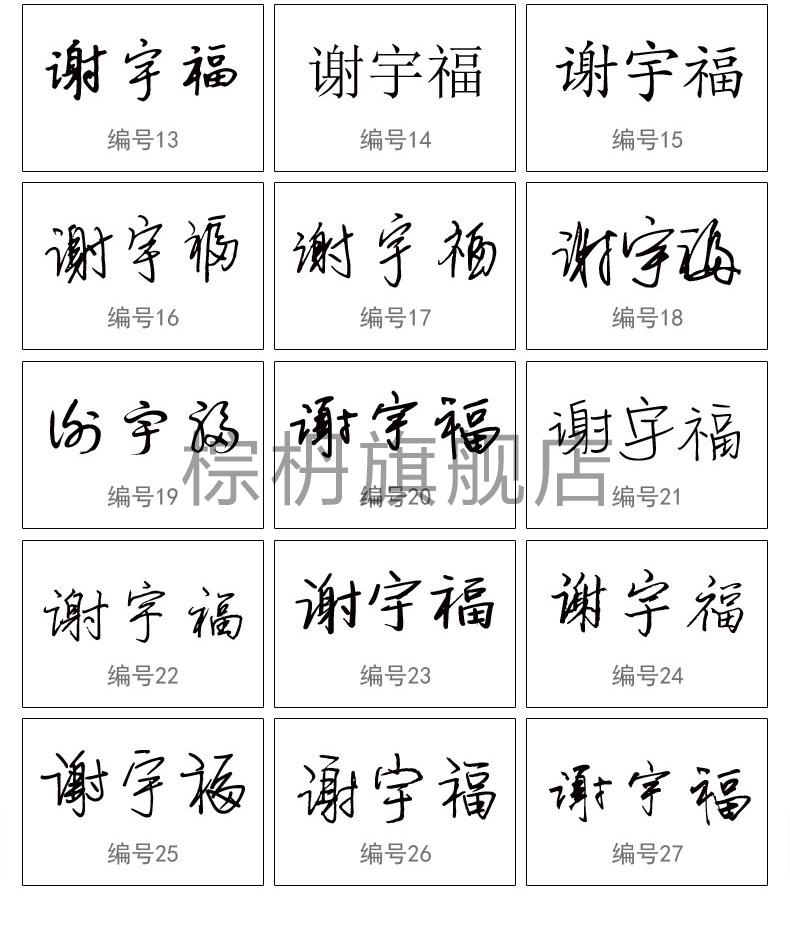 谢宇福 谢宇福 谢宇福
编号13 编号14 编号15
谢宇福 谢宇福 谢宇福
编号16 编号17 编号18
谢宇福 谢宇福 谢宇福
棕枬旗舰店
编号19 编号20 编号21
谢宇福 谢宇福 谢宇福
编号22 编号23 编号24
谢宇福 谢宇福 谢宇福
编号25 编号26 编号27